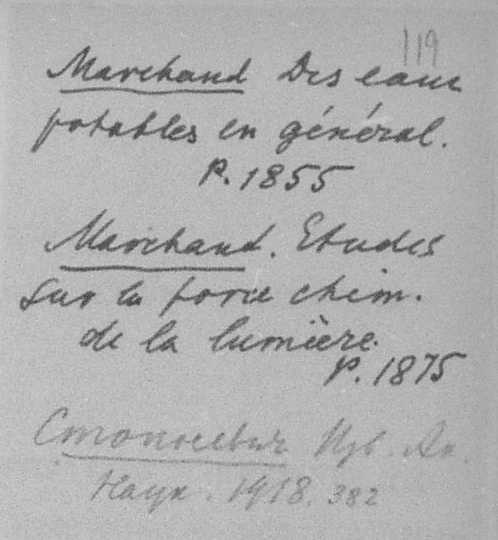 119
Marchand Des eaux
potables en général.
P. 1855
Marchand. Etudes
sur la force chim.
de la lumière.
P. 1875
Изв. Ак.
Наук. 1918. 382